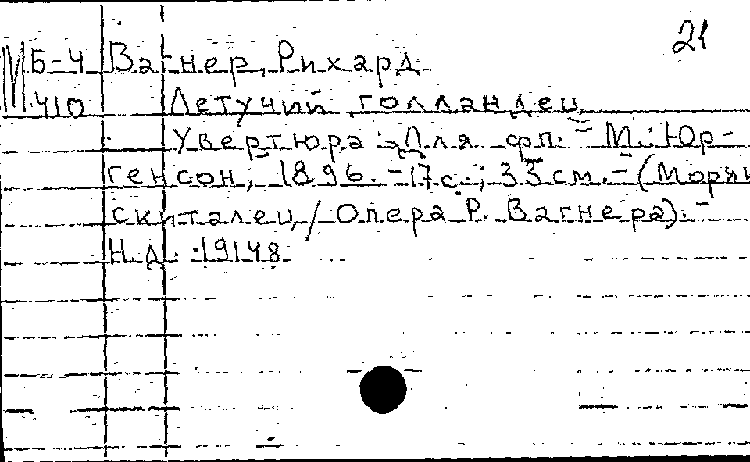 21
Б-4 Вагнер, Рихард
М 410 Летучий голландец
Увертюра: Для фп. - М.: Юр-
генсон, 1896. - 17 с.; 33 см. - (Моряк
скиталец / Опера Р. Вагнера). -
Н.д. 19148